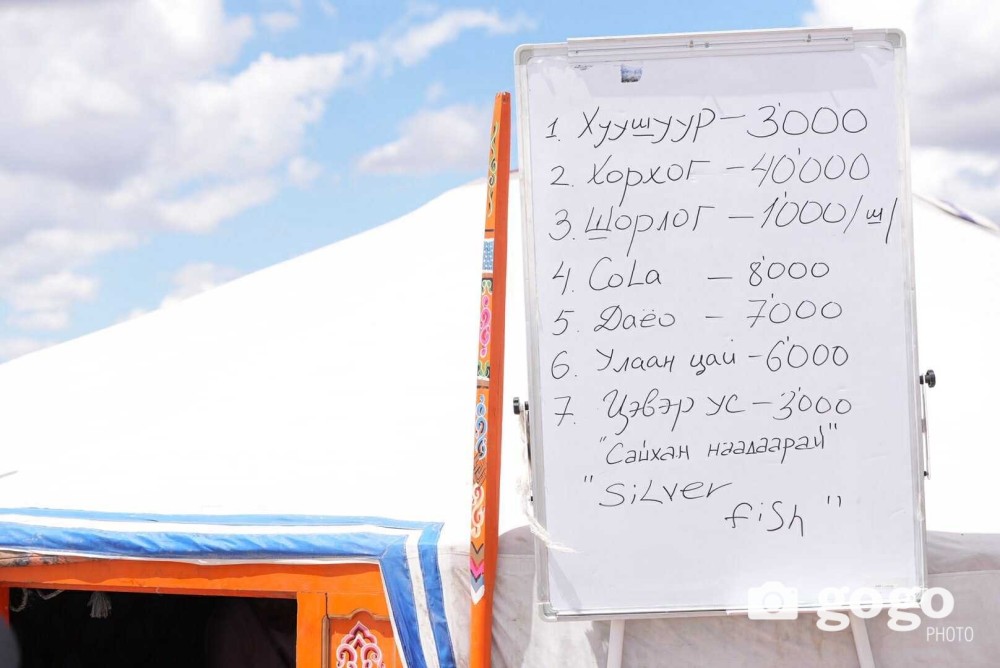 1. Хуушуур – 3'000
2. Хорхог – 40'000
3. Шорлог – 1'000/ш/
4. CoLa – 8'000
5. Даёо – 7'000
6. Улаан цай – 6'000
7. Цэвэр ус – 3'000
"Сайхан наадаарай"
"SiLver
fish"
gogo
PHOTO